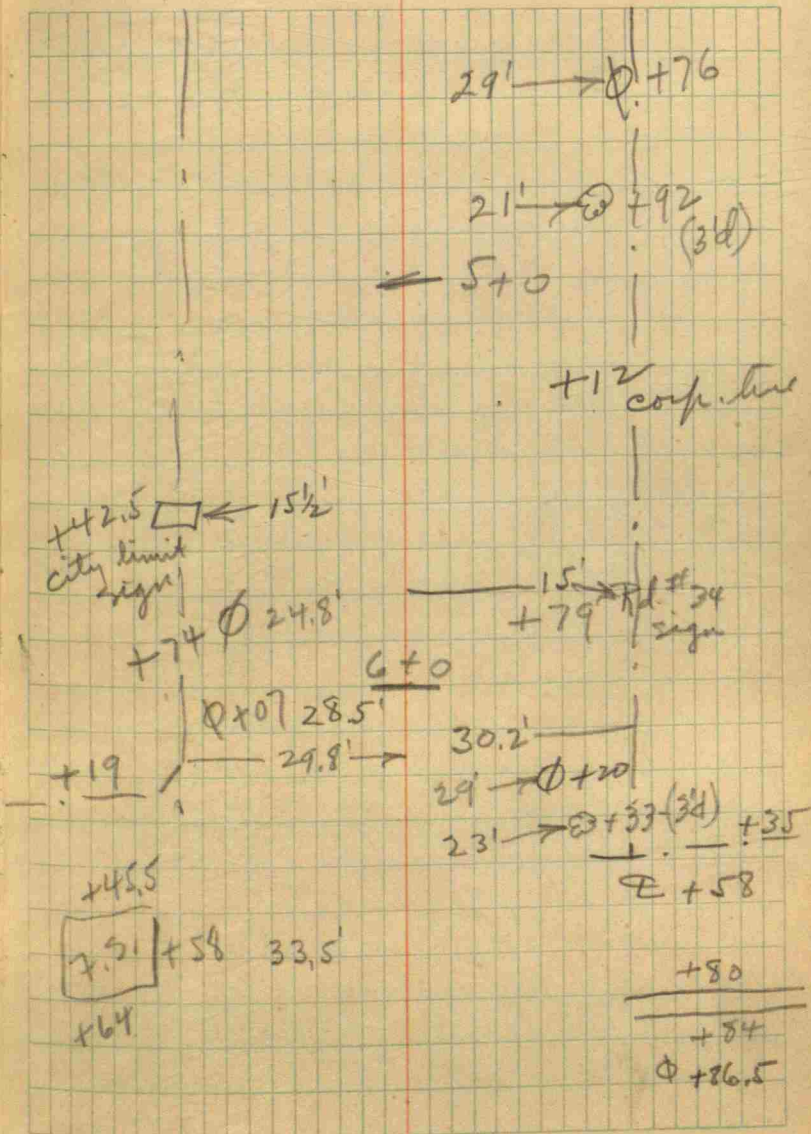 29' ϕ +76
21' +92
(3'd)
5+0
+12
corp. line
+42.5 15½'
city limit
sign
15' Rd. # 34
+79 sign
+74 ϕ 24.8'
6+0
ϕ +07 28.5'
30.2'
29.8'
+19
29' ϕ +20
23' +33 (3'd) +35
℄ +58
+45.5
+58 33.5'
+64
+80
+84
ϕ +86.5